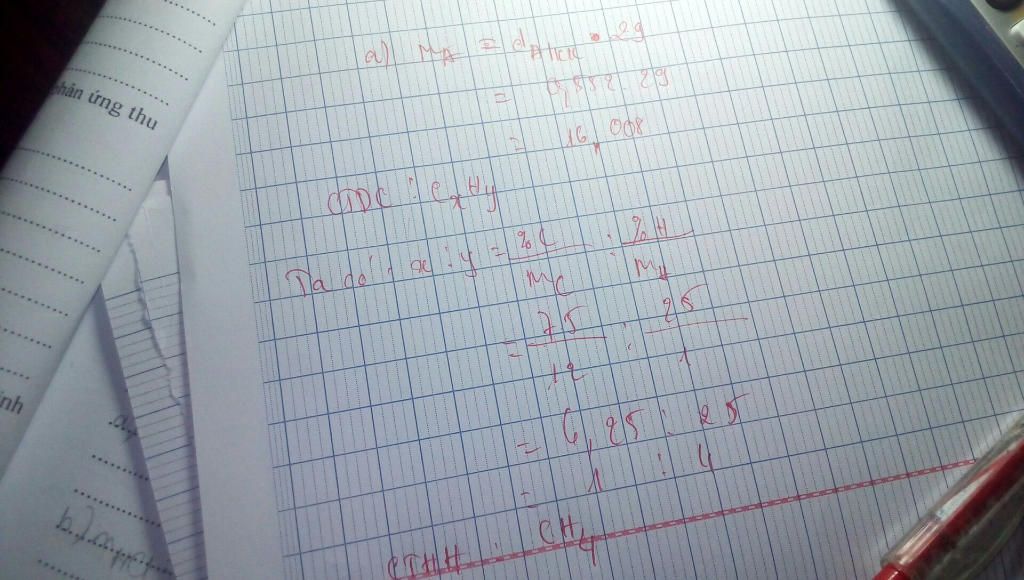 phản ứng thu
a) MA = dA/KK . 29
= 0,552.29
= 16,008
CTDC : CxHy
Ta có : x : y = %C / MC : %H / MH
= 75 / 12 : 25 / 1
= 6,25 : 25
= 1 : 4
CTHH : CH4
b.)